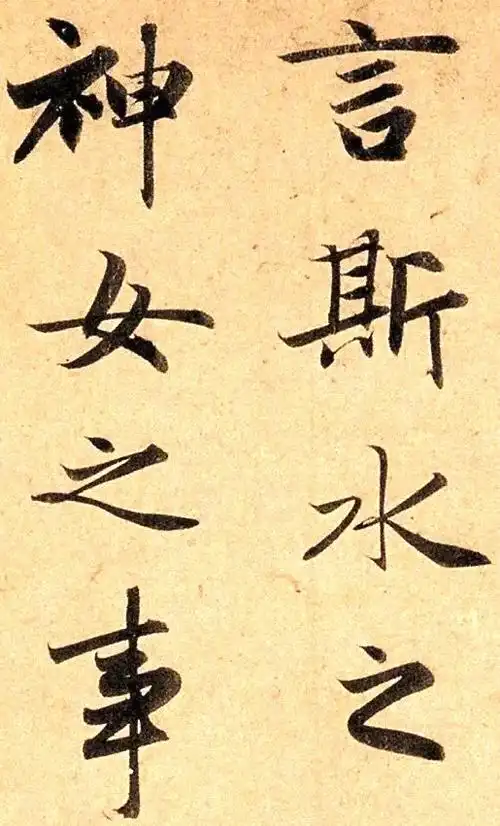 言斯水之
神女之事